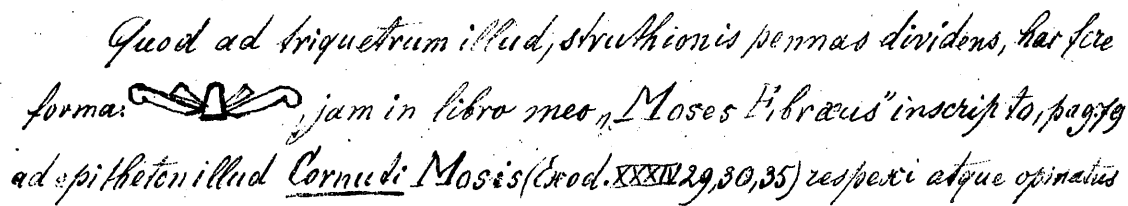 Quod ad triquetrum illud, struthionis pennas dividens, hac fere
forma: , jam in libro meo „Moses Ebræus” inscripto, pag. 79
ad epitheton illud Cornuti Mosis (Exod. XXXIV 29,30,35) respexi atque opinatus